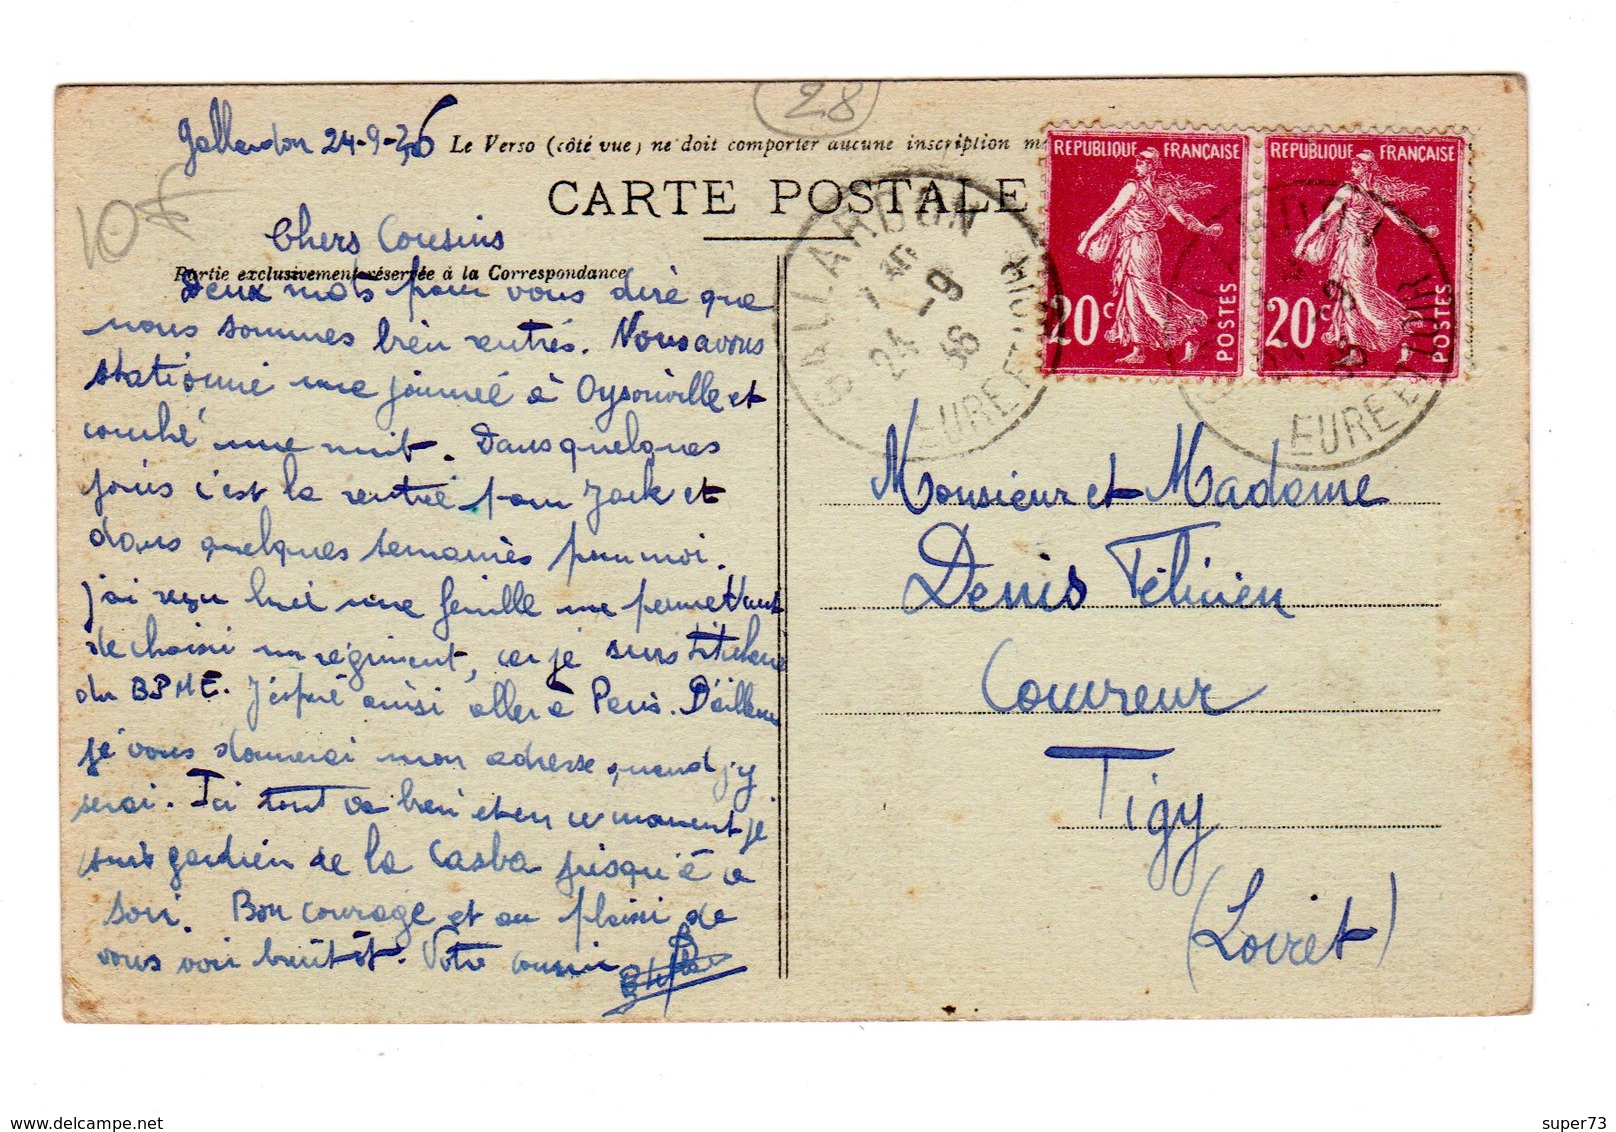 28
Gallardon 24-9-36
Le Verso (côté vue) ne doit comporter aucune inscription
10F
CARTE POSTALE
Chers Cousins
Partie exclusivement réservée à la Correspondance
Deux mots pour vous dire que
nous sommes bien rentrés. Nous avons
stationné une journée à Oysonville et
couché une nuit. Dans quelques
jours c'est la rentrée pour Jack et
dans quelques semaines pour moi.
J'ai reçu hier une feuille me permettant
de choisir un régiment, car je suis titulaire
du BPME. J'espère ainsi aller à Paris. D'ailleurs
je vous donnerai mon adresse quand j'y
serai. Ici tout va bien et en ce moment je
suis gardien de la Casba jusqu'à ce
soir. Bon courage et au plaisir de
vous voir bientôt. Votre cousin
REPUBLIQUE FRANÇAISE
20c
POSTES
REPUBLIQUE FRANÇAISE
20c
POSTES
GALLARDON
24 -9
36
EURE ET LOIR
EURE ET LOIR
Monsieur et Madame
Denis Félicien
Couvreur
Tigy
(Loiret)
super73
www.delcampe.net